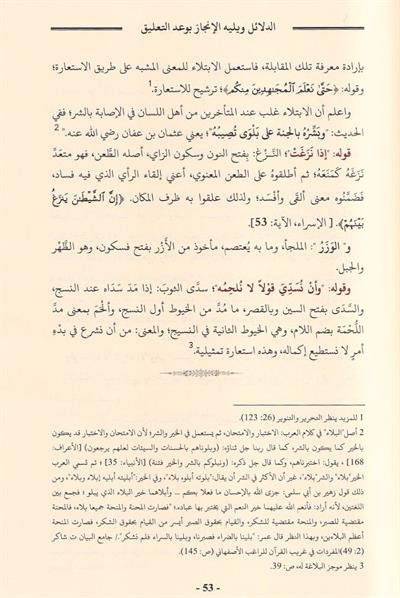 الدلائل ويليه الإنجاز بوعد التعليق
بإرادة معرفة تلك المقابلة، فاستعمل الابتلاء للمعنى المشبه على طريق الاستعارة؛
وقوله: ﴿حَتَّىٰ نَعْلَمَ ٱلْمُجَٰهِدِينَ مِنكُمْ﴾؛ ترشيح للاستعارة.1
واعلم أن الابتلاء غلب عند المتأخرين من أهل اللسان في الإصابة بالشر؛ ففي
الحديث: "وبَشِّرْهُ بالجنة على بَلْوَى تُصِيبُهُ"؛ يعني عثمان بن عفان رضي الله عنه."2
قوله: "إذا نَزَغَتْ"؛ النَّزغ: بِفتح النون وسكون الزاي، أصله الطَّعن، فهو متعدٍّ
نَزَغَهُ كمَنَعَهُ؛ ثم أطلقوهُ على الطعن المعنوي، أعني إلقاء الرأي الذي فيه فساد،
فضَمَّنُوه معنى ألقى وأفسد؛ ولذلك علقوا به ظرف المكان. ﴿إِنَّ ٱلشَّيْطَٰنَ يَنزَغُ
بَيْنَهُمْ﴾. [ الإسراء، الآية: 53].
و" الوَزَرُ ": الملجأ، وما به يُعتصم، مأخوذ من الأَزْرِ بفتح فسكون، وهو الظَّهْر
والجبل.
وقوله: "وأنْ نُسَدِّيَ قَوْلاً لا نُلحِمُه"؛ سدَّى الثوبَ: إذا مَدَ سَدَاه عند النسج،
والسَّدَى بفتح السين وبالقصر، ما مُدَّ من الخيوط أول النسج، وألْحَم بمعنى مدَّ
اللُّحْمَة بضم اللام، وهي الخيوط الثانية في النسيج؛ والمعنى: من أن نشرع في بدْءِ
أمرٍ لا نستطيع إكماله، وهذه استعارة تمثيلية.3
1 للمزيد ينظر التحرير والتنوير (26: 123).
2 أصل"البلاء" في كلام العرب: الاختبار والامتحان، ثم يستعمل في الخير والشر؛ لأن الامتحان والاختبار قد يكون
بالخير كما يكون بالشر، كما قال ربنا جل ثناؤه: (وبلوناهم بالحسنات والسيئات لعلهم يرجعون) [الأعراف:
168] ، يقول: اختبرناهم، وكما قال جل ذكره: (ونبلوكم بالشر والخير فتنة) [الأنبياء: 35] ؛ ثم تسمي العرب
الخير"بلاء" والشر"بلاء"، غير أن الأكثر في الشر أن يقال:"بلوته أبلوه بلاء" وفي الخير:"أبليته أبليه إبلاء وبلاء"، ومن
ذلك قول زهير بن أبي سلمى: جزى الله بالإحسان ما فعلا بكم ... وأبلاهما خير البلاء الذي يبلو ؛ فجمع بين
اللغتين، لأنه أراد: فأنعم الله عليهما خير النعم التي يختبر بها عباده؛ "فصارت المحنة والمنحة جميعا بلاء، فالمحنة
مقتضية للصبر، والمنحة مقتضية للشكر، والقيام بحقوق الصبر أيسر من القيام بحقوق الشكر، فصارت المنحة
أعظم البلاءين، وبهذا النظر قال عمر: "بلينا بالضراء فصبرنا، وبلينا بالسراء فلم نشكر"./ جامع البيان ت شاكر
(2: 49)المفردات في غريب القرآن للراغب الأصفهاني (ص: 145).
3 ينظر موجز البلاغة له، ص: 39.
- 53 -